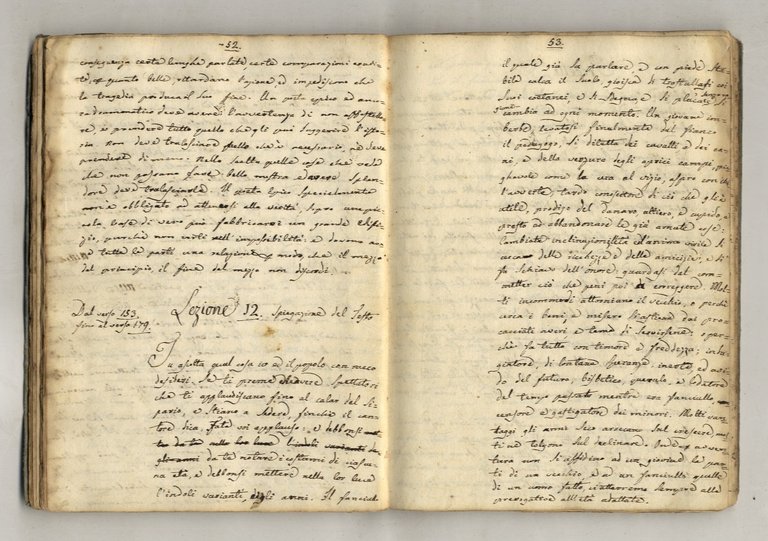 52.
conseguenza certe lunghe parlate, certe comparazioni
quanto belle ritardano l'azione ed impediscono che
la tragedia produca il suo fine. Un poeta epico ed
dramatico deve avere l'avvertenza di non
re, e prendere tutto quello che gli può suggerire
Non deve tralasciare quello che è necessario, nè deve
prendere di meno. Nella scelta quelle cose che vede
che non possano fare bella mostra ed avere splen-
dore deve tralasciarle. Il poeta epico specialmente
non è obbligato ad attenersi alla verità, sopra una pic-
cola base di vero può fabbricarvi un grande edifi-
zio, purchè non urti nell'impossibilità: e devono
tutte le parti una relazione modo, che il mezzo
dal principio, il fine dal mezzo non discordi.
Dal verso 153. Lezione 12. Spiegazione del Testo
fino al verso 179.
Tu aspetta qual cosa io ed il popolo con meco
desideri. Se ti preme di avere spettatori
che ti applaudiscano fino al calar del si-
pario, e stiano a sedere, finchè il can-
tore dica, fate voi applauso: e debbonsi
da te notare i costumi di ciascu-
na età, e debbonsi mettere nella lor luce
l'indoli varianti, e gli anni. Il fanciul-
53.
il quale già sa parlare, e con piede sta-
bile calca il suolo, gioisce di trastullarsi coi
suoi coetanei, e si sdegna e si placa, e si
cambia ad ogni momento. Un giovane im-
berbe, levatosi finalmente dal fianco
il pedagogo, si diletta dei cavalli e dei ca-
ni, e della verzura degli aprici campi, pie-
ghevole come la cera al vizio, aspro con chi
l'avverte, tardo conoscitore di ciò che gli è
utile, prodigo del danaro, altiero, e cupido, e
presto ad abbandonare le già amate cose.
Cambiate inclinazioni, l'età ed animo virile si
delle ricchezze e delle amicizie, e si
fa schiavo dell'onore; guardasi dal com-
metter ciò che poi può correggere. Mol-
ti incommodi attorniano il vecchio, o perchè
cerca i beni, e misero si astiene dai pro-
cacciati averi e teme di servirsene; o per-
chè fa tutto con timore e freddezza; indu-
giatore, di lontane speranze, inerte ed avi-
do del futuro, bisbetico, querulo, e lodatore
del tempo passato mentre era fanciullo,
censore e gastigatore dei minori. Molti van-
taggi gli anni seco arrecano sul crescere, mol-
ti ne tolgono sul declinare. Onde
tura non si affidino ad un giovine le par-
ti di un vecchio, e ad un fanciullo quelle
di un uomo fatto, ci atterremo sempre alle
prerogative all'età adattate.